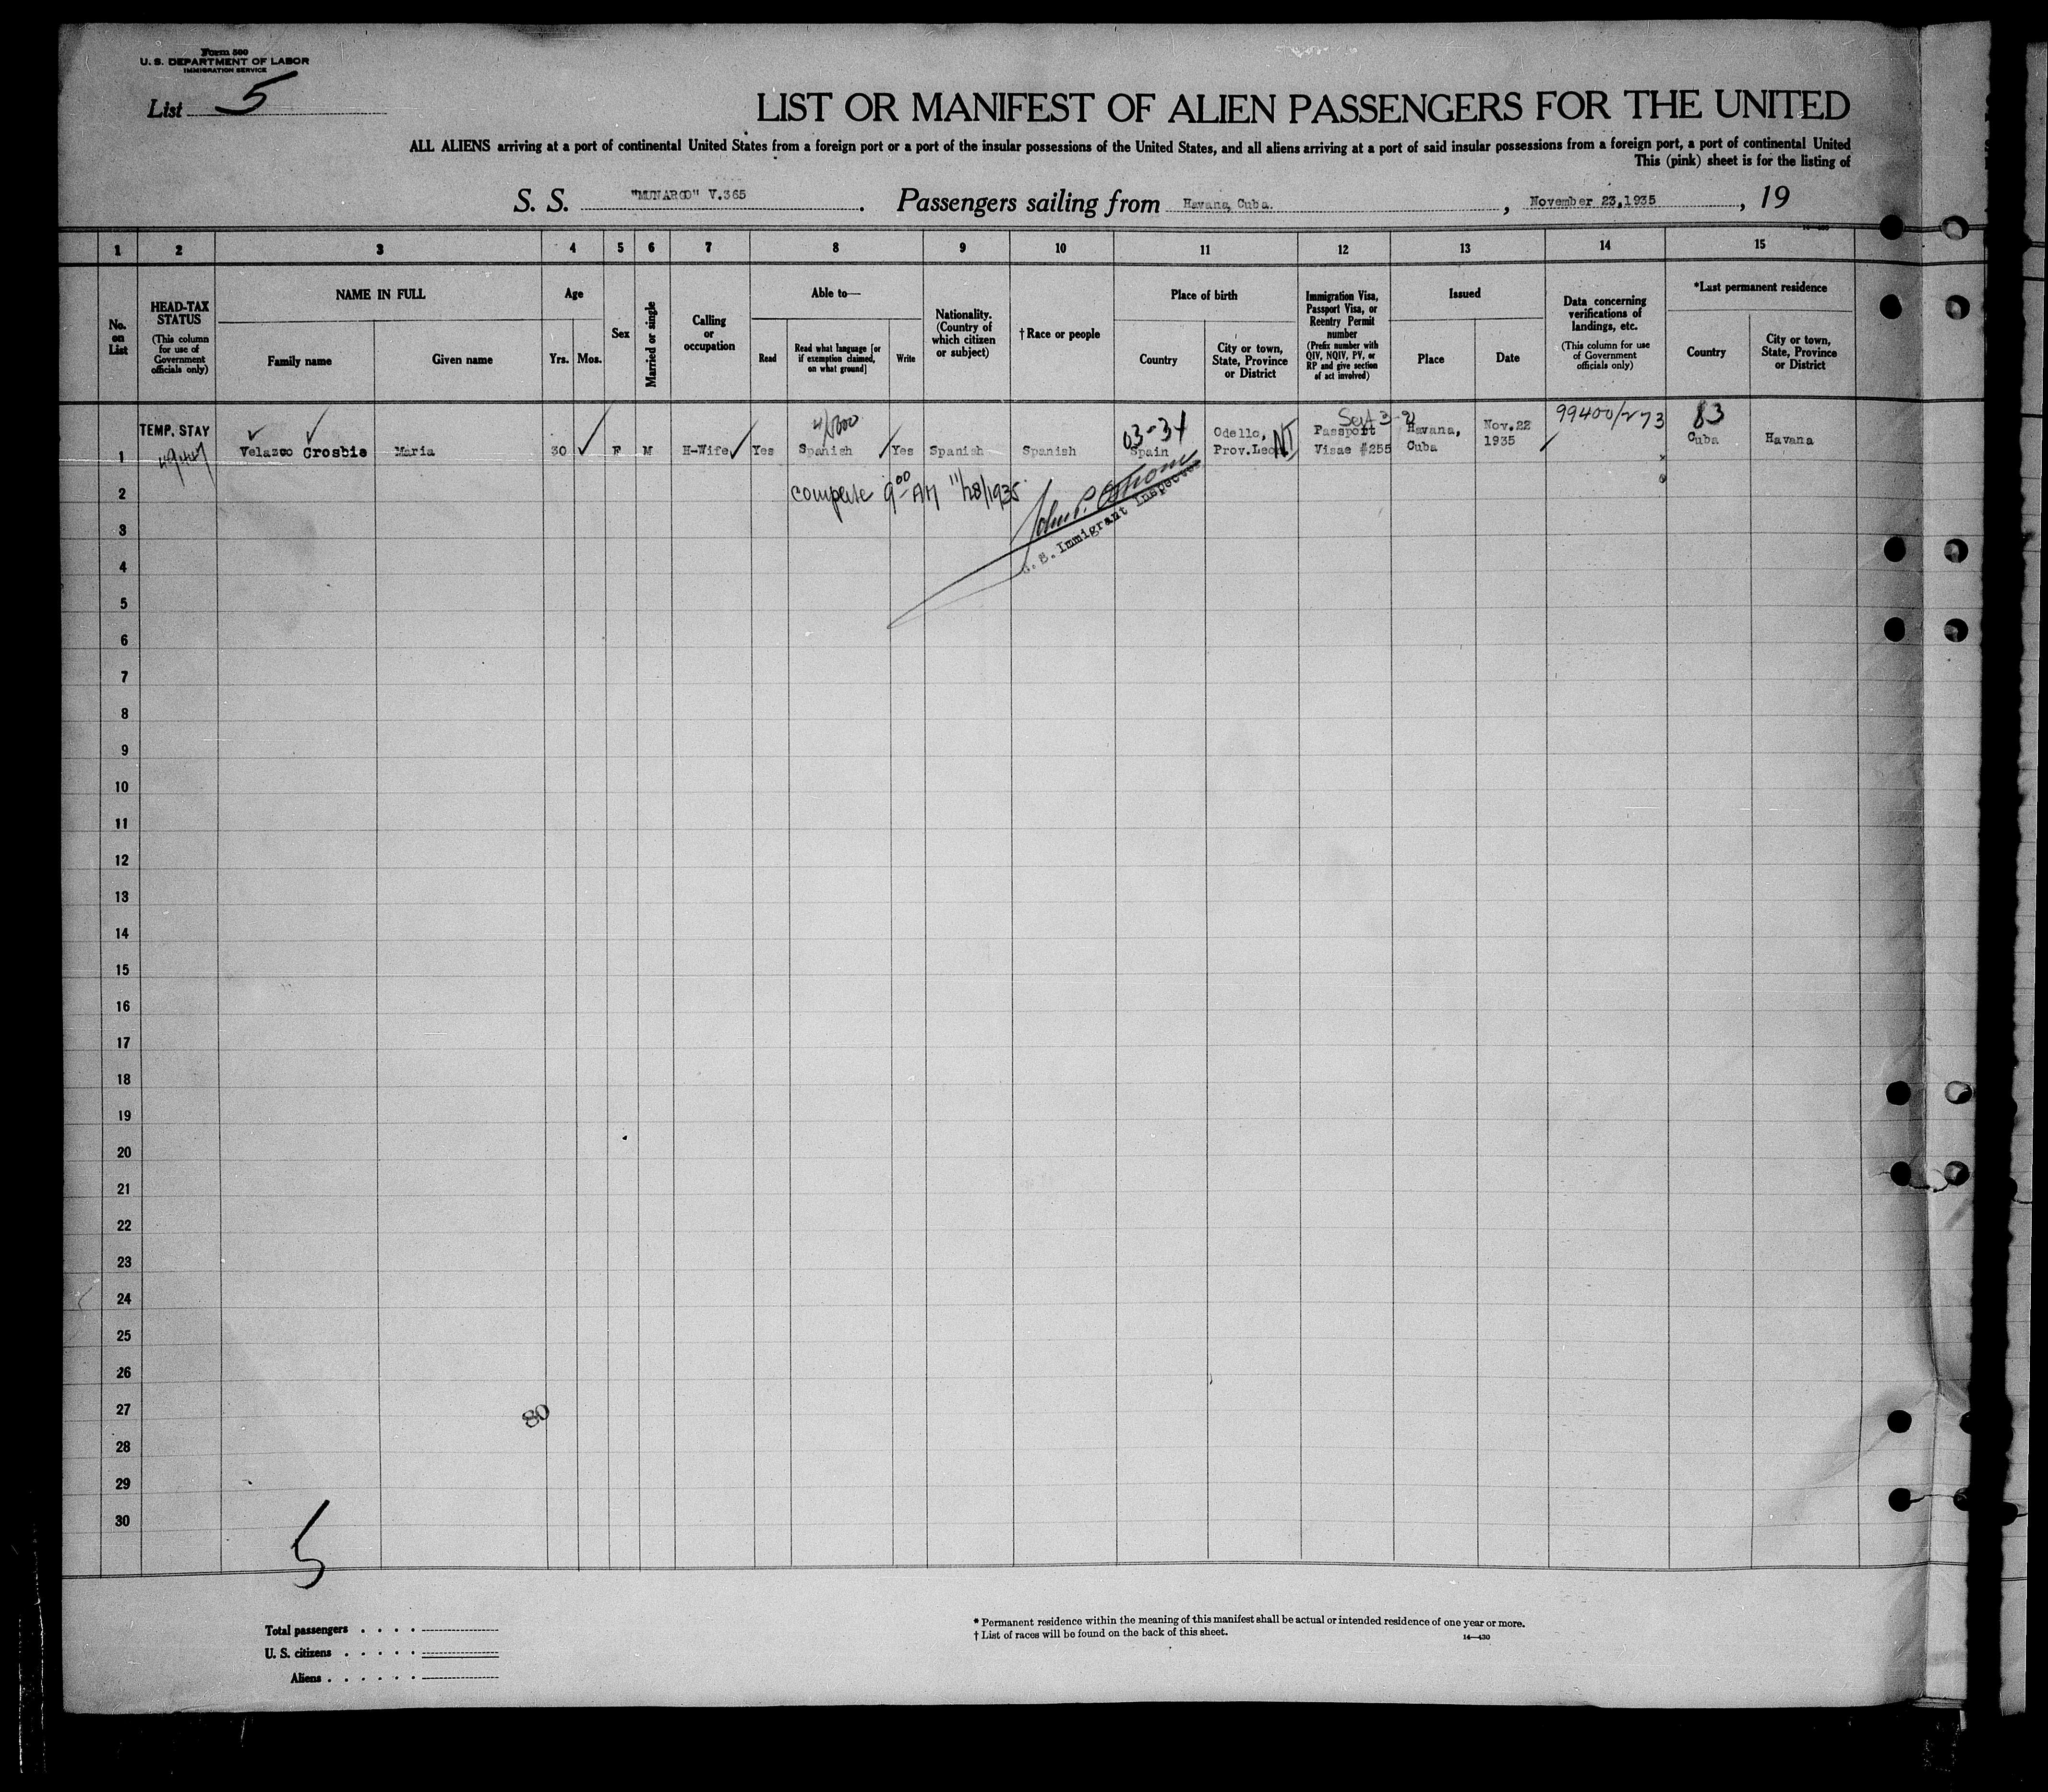 Form 500
U. S. DEPARTMENT OF LABOR
IMMIGRATION SERVICE
List 5
LIST OR MANIFEST OF ALIEN PASSENGERS FOR THE UNITED
ALL ALIENS arriving at a port of continental United States from a foreign port or a port of the insular possessions of the United States, and all aliens arriving at a port of said insular possessions from a foreign port, a port of continental United
This (pink) sheet is for the listing of
S. S. "MUNARGO" V.365. Passengers sailing from Havana, Cuba. , November 23,1935 , 19
1 2 3 4 5 6 7 8 9 10 11 12 13 14 15
No. on List
HEAD-TAX STATUS
(This column for use of Government officials only)
NAME IN FULL
Family name
Given name
Age
Yrs.
Mos.
Sex
Married or single
Calling or occupation
Able to—
Read
Read what language [or if exemption claimed, on what ground]
Write
Nationality. (Country of which citizen or subject)
† Race or people
Place of birth
Country
City or town, State, Province or District
Immigration Visa, Passport Visa, or Reentry Permit number
(Prefix number with QIV, NQIV, PV, or RP and give section of act involved)
Issued
Place
Date
Data concerning verifications of landings, etc.
(This column for use of Government officials only)
*Last permanent residence
Country
City or town, State, Province or District
4/5600 03-34 Sect 3-2 99400/273 83
TEMP. STAY Odello, Passport Havana, Nov.22
1 Velazco Crosbie Maria 30 F M H-Wife Yes Spanish Yes Spanish Spanish Spain Prov.Leon Visae #255 Cuba 1935 Cuba Havana
NI
2
9 00 AM 11/28/1935
John P.
S. Immigrant Inspector
3
4
5
6
7
8
9
10
11
12
13
14
15
16
17
18
19
20
21
22
23
24
25
26
27
80
28
29
30
5
Total passengers . . . .
U. S. citizens . . . . .
Aliens . . . . . .
* Permanent residence within the meaning of this manifest shall be actual or intended residence of one year or more.
† List of races will be found on the back of this sheet.
14—430